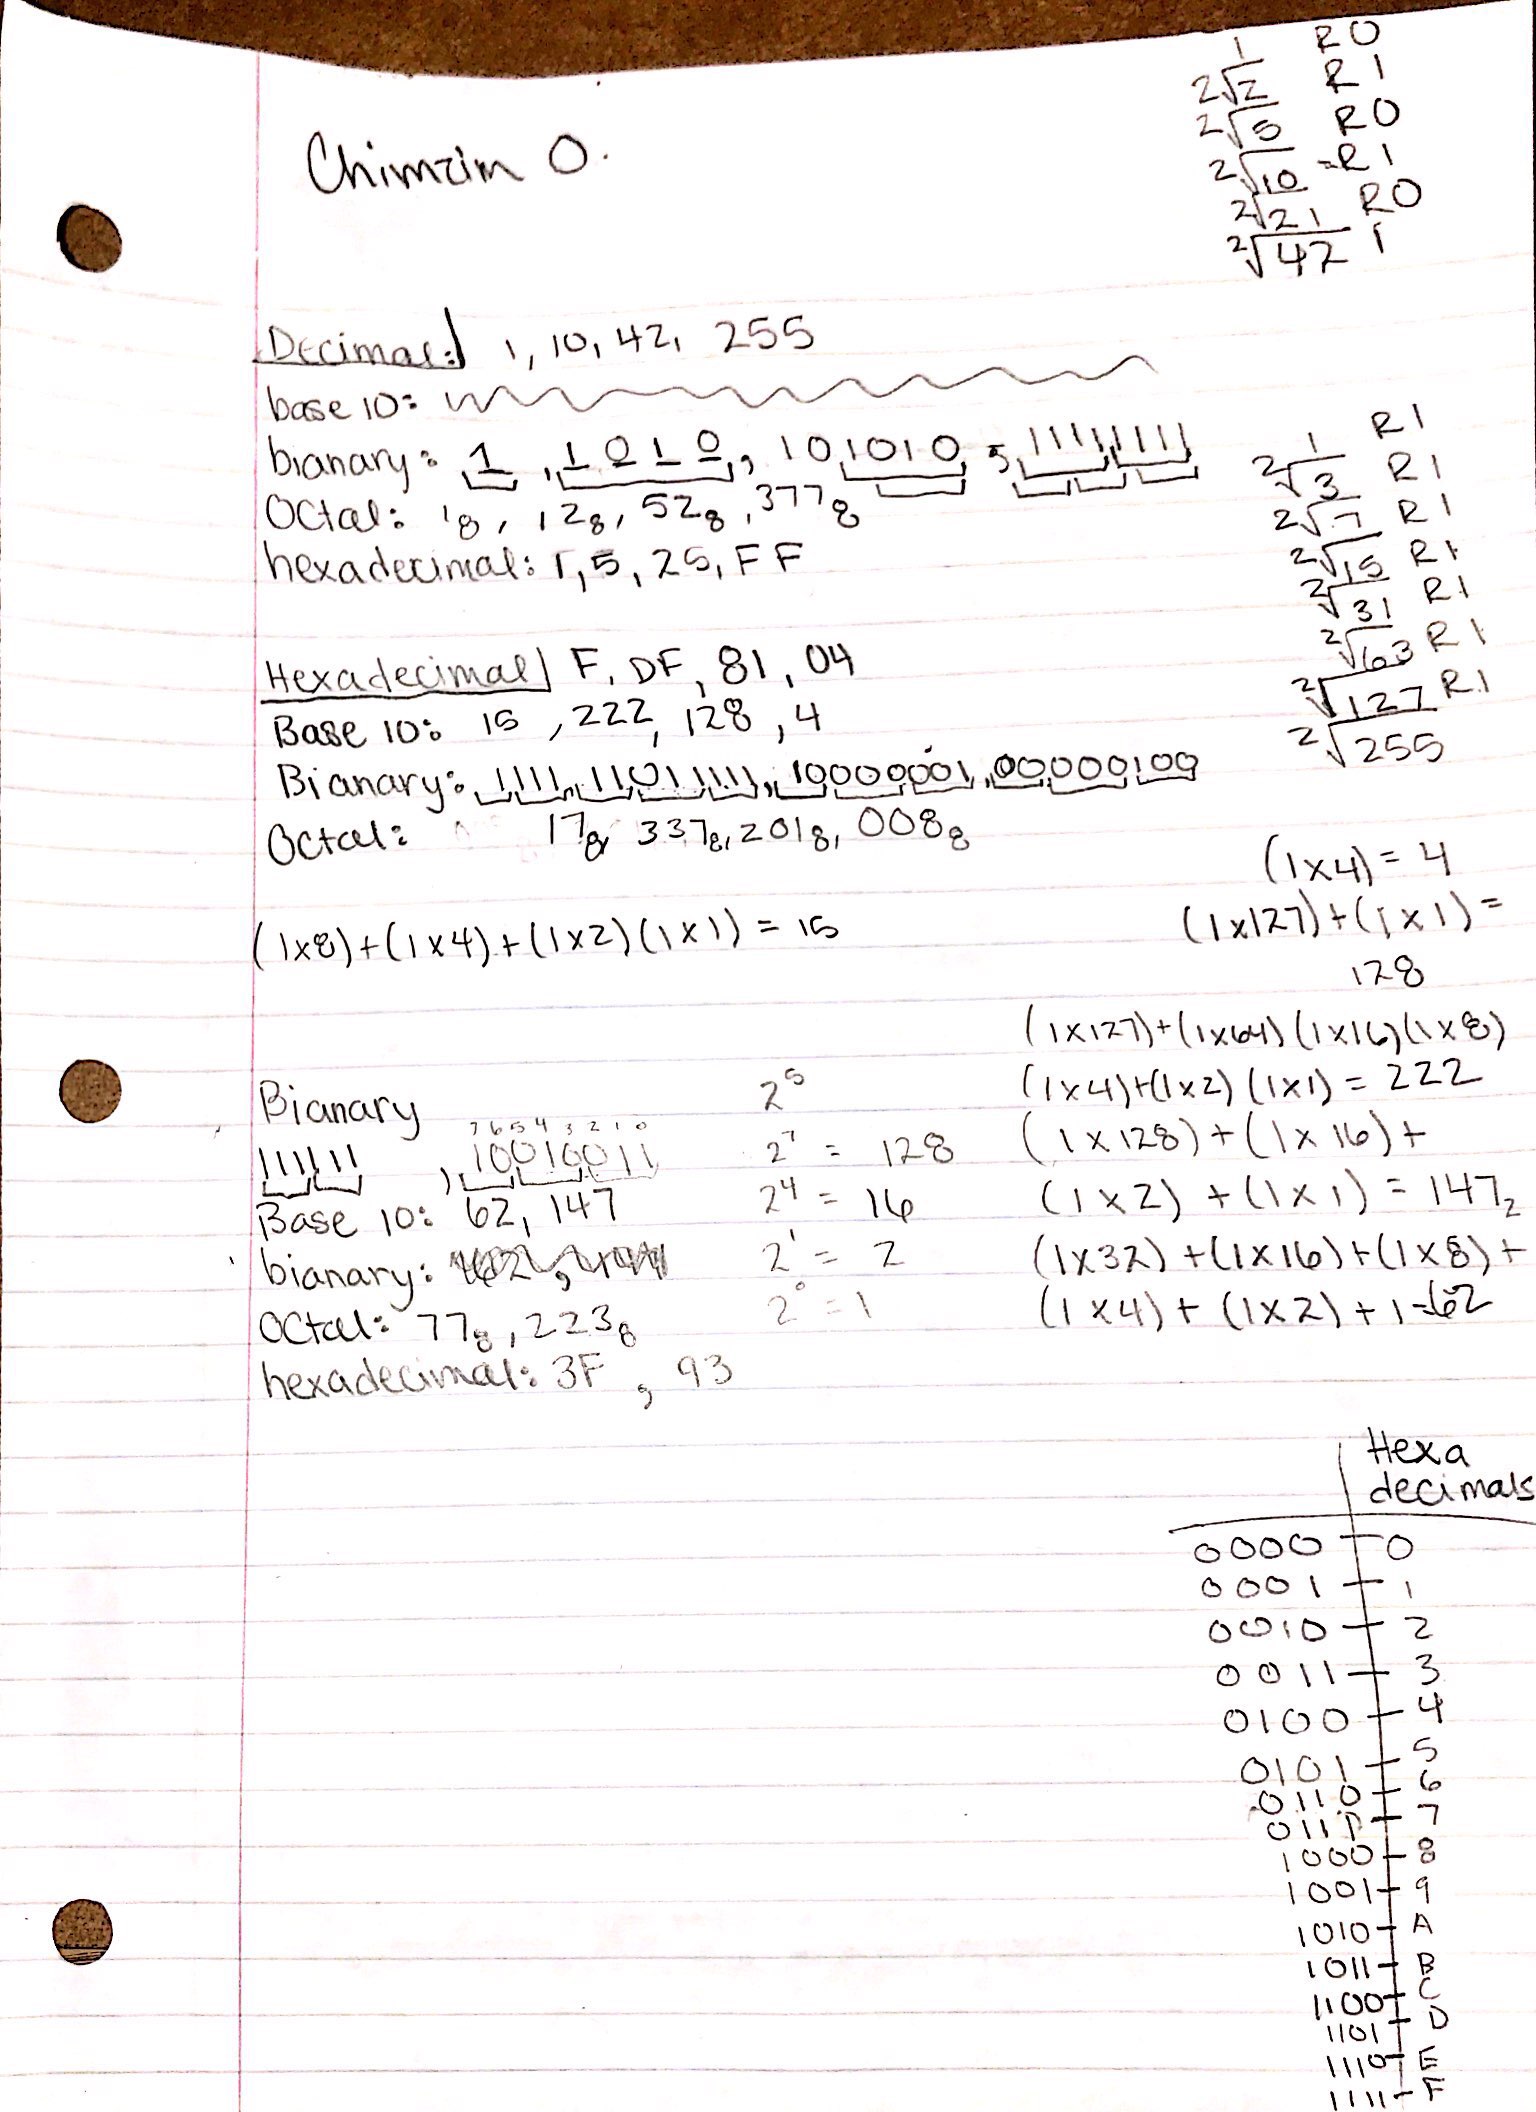 Chimzim O.
1 R0
2√2 R1
2√5 R0
2√10 R1
2√21 R0
2√42 1
Decimal: 1, 10, 42, 255
base 10:
bianary: 1, 1010, 101010, 11111111
Octal: 1₈, 12₈, 52₈, 377₈
hexadecimal: 1, 5, 25, FF
1 R1
2√3 R1
2√7 R1
2√15 R1
2√31 R1
2√63 R1
2√127 R1
2√255
Hexadecimal F, DF, 81, 04
Base 10: 15, 222, 128, 4
Bianary: 1111, 11011111, 10000001, 00000100
Octal: 17₈, 337₈, 201₈, 008₈
(1x4) = 4
(1x127)+(1x1) =
128
(1x8)+(1x4)+(1x2)(1x1) = 15
(1x127)+(1x64)(1x16)(1x8)
(1x4)+(1x2)(1x1) = 222
(1x128)+(1x16)+
(1x2)+(1x1) = 147₂
(1x32)+(1x16)+(1x8)+
(1x4)+(1x2)+1=62
Bianary
7 6 5 4 3 2 1 0
111111, 10010011
Base 10: 62, 147
bianary:
Octal: 77₈, 223₈
hexadecimal: 3F, 93
2⁵
2⁷ = 128
2⁴ = 16
2¹ = 2
2⁰ = 1
Hexa
decimals
0000 0
0001 1
0010 2
0011 3
0100 4
0101 5
0110 6
0111 7
1000 8
1001 9
1010 A
1011 B
1100 C
1101 D
1110 E
1111 F